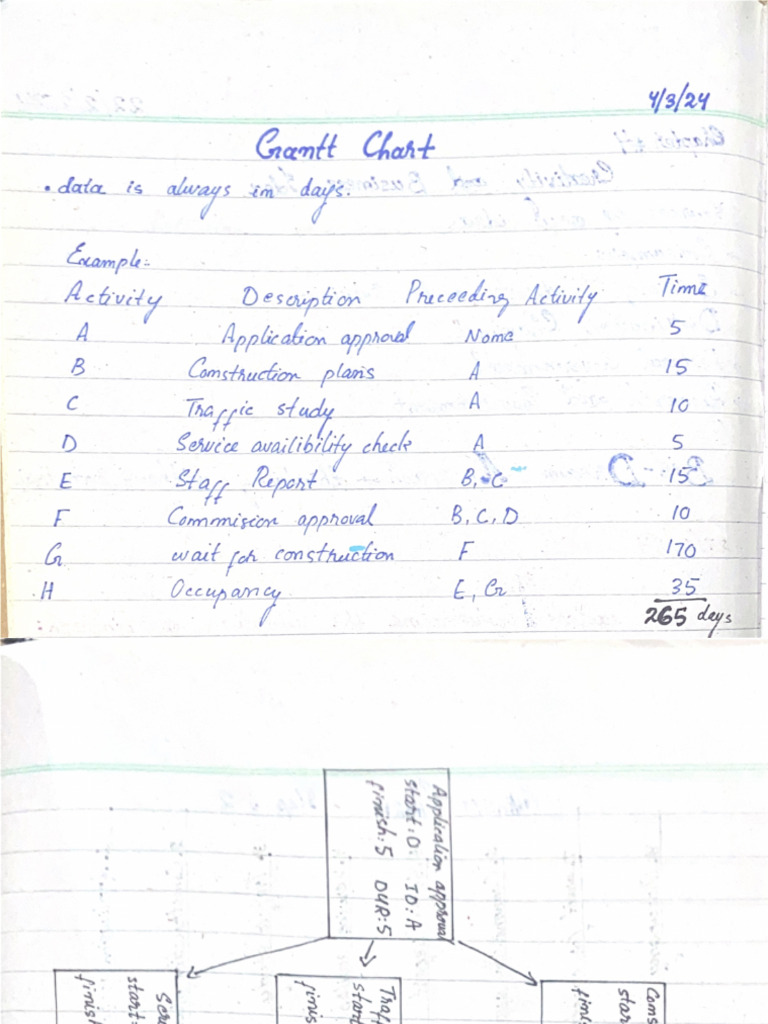 4/3/24
Gantt Chart
• data is always in days.
Example:-
Activity Description Preceeding Activity Time
A Application approval None 5
B Construction plans A 15
C Traffic study A 10
D Service availibility check A 5
E Staff Report B, C 15
F Commision approval B, C, D 10
G wait for construction F 170
H Occupancy E, G 35
265 days
Application approval
start: 0 ID: A
finish: 5 DUR: 5
Ser
start:
finish
Traff
start
finis
Cons
star
fini